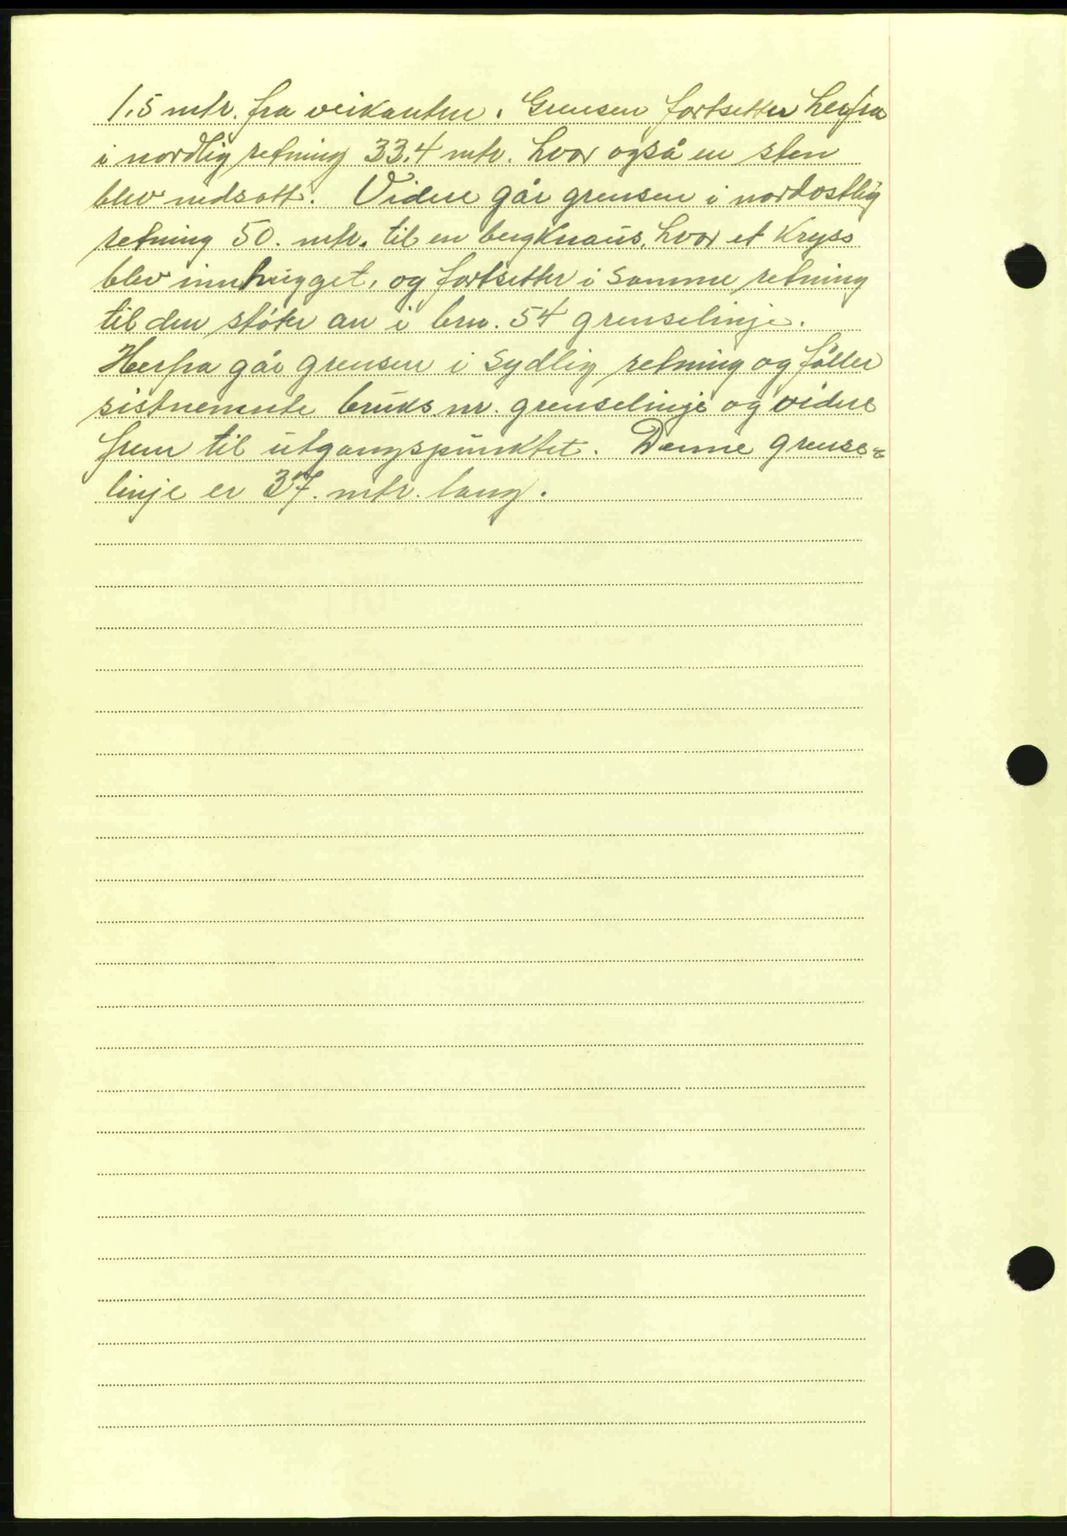 1,5 mtr. fra veikanten. Grensen fortsetter herfra
i nordlig retning 33.4 mtr. hvor også en sten
blev nedsatt. Videre går grensen i nordostlig
retning 50. mtr. til en bergknaus, hvor et kryss
blev innhugget, og fortsetter i samme retning
til den støter an i brn. 54 grenselinje.
Herfra går grensen i sydlig retning og føller
sistnemnte bruks nr. grenselinje og videre
frem til utgangspunktet. Denne grense=
linje er 37. mtr. lang.